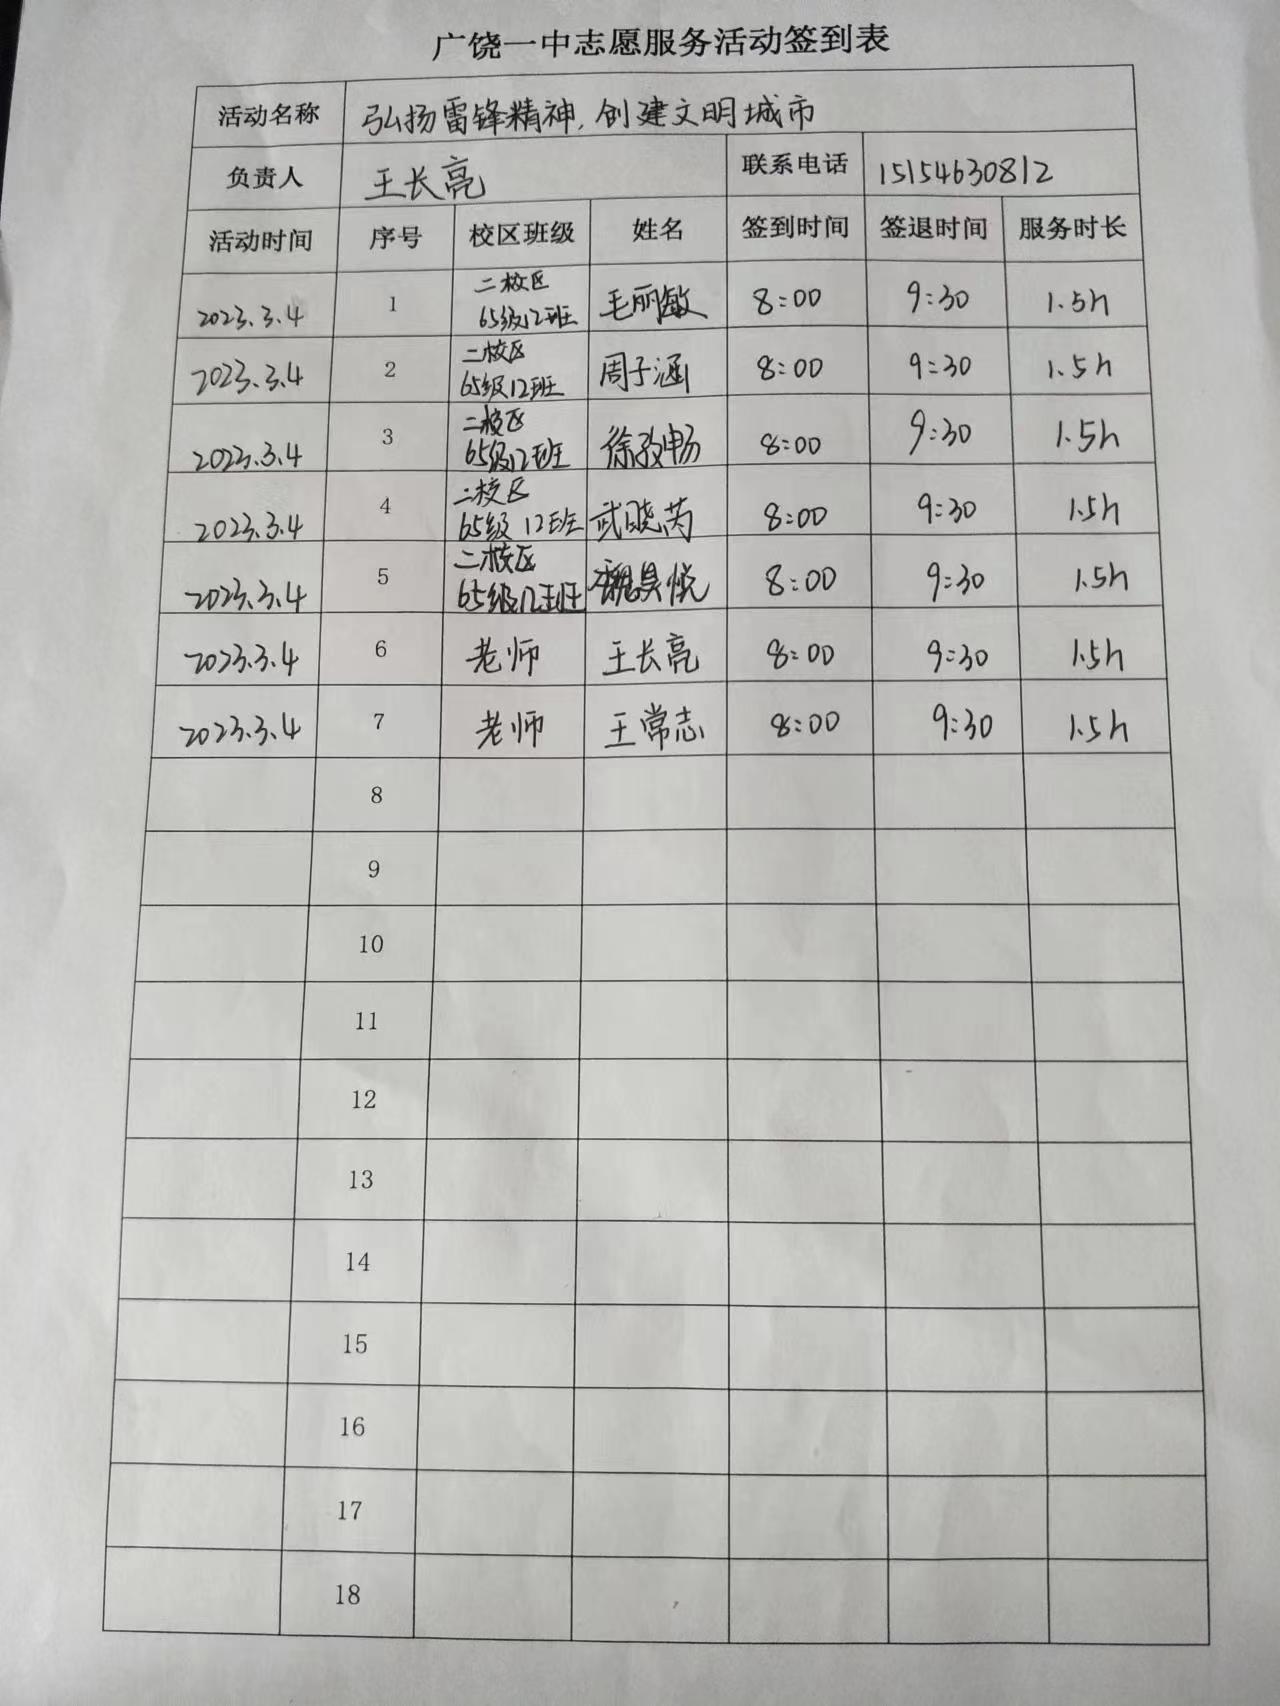 广饶一中志愿服务活动签到表
活动名称 弘扬雷锋精神,创建文明城市
负责人 王长亮 联系电话 15154630812
活动时间 序号 校区班级 姓名 签到时间 签退时间 服务时长
2023.3.4 1 二校区 65级12班 毛丽敏 8:00 9:30 1.5h
2023.3.4 2 二校区 65级12班 周子涵 8:00 9:30 1.5h
2023.3.4 3 二校区 65级12班 8:00 9:30 1.5h
2023.3.4 4 二校区 65级12班 武晓芮 8:00 9:30 1.5h
2023.3.4 5 二校区 65级12班 魏昊悦 8:00 9:30 1.5h
2023.3.4 6 老师 王长亮 8:00 9:30 1.5h
2023.3.4 7 老师 王常志 8:00 9:30 1.5h
8
9
10
11
12
13
14
15
16
17
18